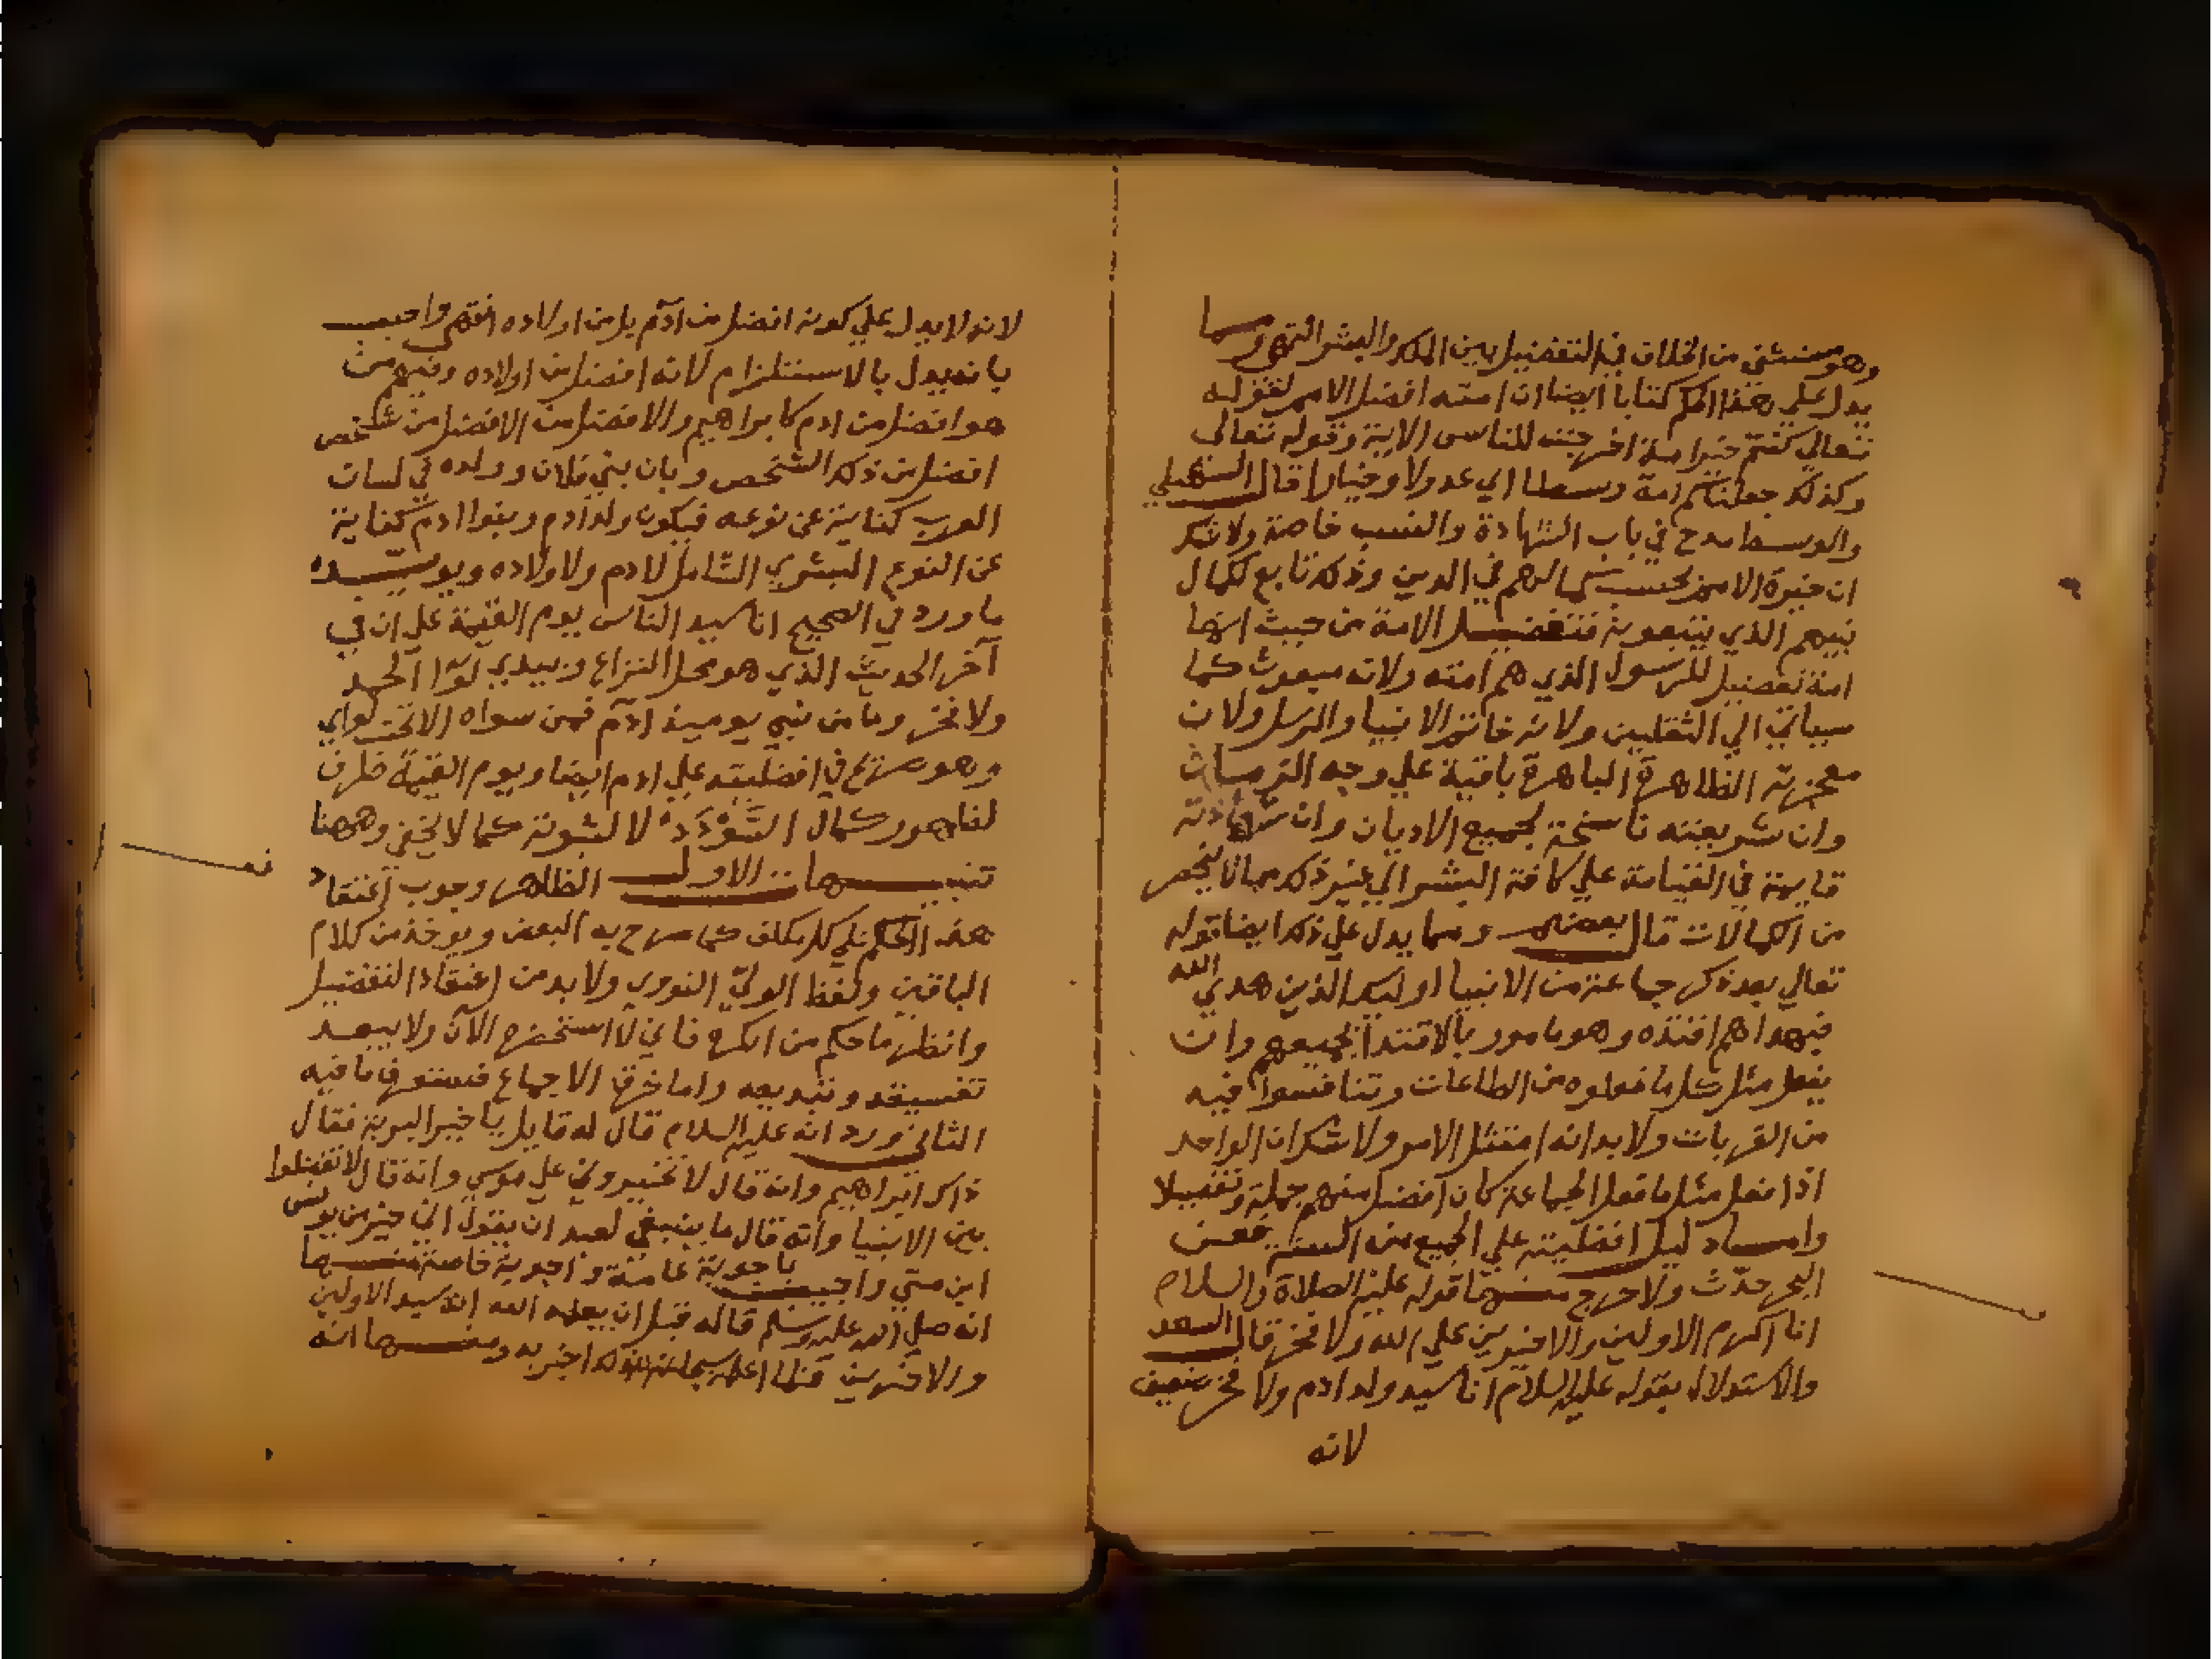 وهو مستثنى من الخلاف في التفضيل بين الملك والبشر انتهى ومما
يدل على هذا الحكم كتابا ايضا ان امته افضل الامم لقوله
تعالي كنتم خير امة اخرجت للناس الاية وقوله تعالى
وكذلك جعلناكم امة وسطا اي عدولا وخيارا قال السهيلي
والوسط مدح في باب الشهادة والنسب خاصة ولا شك
ان خيرة الامم بحسب كمالهم في الدين وذلك تابع لكمال
نبيهم الذي يتبعونه فتفضيل الامة من حيث انها
امة تفضيل للرسول الذي هم امته ولانه مبعوث كما
سياتي الي الثقلين ولانه خاتم الانبيا والرسل ولان
معجزته الظاهرة الباهرة باقية علي وجه الزمان
وان شريعته ناسخة لجميع الاديان وان شهادته
قايمة في القيامة علي كافة البشر الي غير ذلك مما لا ينحصر
من الكمالات قال بعضهم ومما يدل علي ذلك ايضا قوله
تعالي بعد ذكر جماعة من الانبيا اوليك الذين هدي الله
فبهداهم اقتده وهو مامور بالاقتدا بجميعهم وان
يفعل مثل كل ما فعلوه من الطاعات وتنافسوا فيه
من القربات ولا بد انه امتثل الامر ولا شك ان الواحد
اذا فعل مثل ما فعل الجماعة كان افضل منهم جملة وتفصيلا
واما دليل افضليته علي الجميع من السنة فعن
البحر حدث ولا حرج منها قوله عليه الصلاة والسلام
انا اكرم الاولين والاخرين علي الله ولا فخر قال السعد
والاستدلال بقوله عليه السلام انا سيد ولد ادم ولا فخر ضعيف
لانه
لانه لا يدل علي كونه افضل من آدم بل من اولاده انتهى واجيب
بانه يدل بالاستلزام لانه افضل من اولاده وفيهم من
هو افضل من ادم كابراهيم والافضل من الافضل من شخص
افضل من ذلك الشخص وبان بني فلان وولده في لسان
العرب كناية عن نوعه فيكون ولد آدم وبنوا ادم كناية
عن النوع البشري الشامل لادم ولاولاده ويويده
ما ورد في الصحيح انا سيد الناس يوم القيمة علي ان في
آخر الحديث الذي هو محل النزاع وبيدي لوآ الحمد
ولا فخر وما من نبي يوميذ ادم فمن سواه الا تحت لواي
وهو صريح في افضليته علي ادم ايضا ويوم القيمة ظرف
لظهور كمال السؤدد لا لثبوته كما لا يخفي وههنا
تنبيهات الاول الظاهر وجوب اعتقاد
هذا الحكم علي كل مكلف كما صرح به البعض ويوخذ من كلام
الباقين ولفظ الولي النووي ولا بد من اعتقاد التفضيل
وانظر ما حكم من انكره فاني لا استحضره الآن ولا يبعد
تفسيقه وتبديعه واما خرق الاجماع فستعرف ما فيه
الثاني ورد انه عليه السلام قال له قايل يا خير البرية فقال
ذاك ابراهيم وانه قال لا تخيروني علي موسي وانه قال لا تفضلوا
بين الانبيا وانه قال ما ينبغي لعبد ان يقول اني خير من يونس
ابن متي واجيب باجوبة عامة واجوبة خاصة منها
انه صلي الله عليه وسلم قاله قبل ان يعلمه الله انه سيد الاولين
والاخرين فلما اعلمه بذلك اخبر به ومنها انه